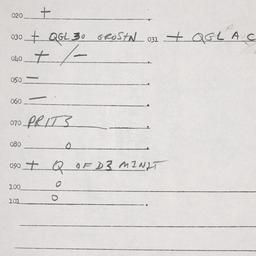 020 +
030 + QGL 30 GROSTN 031 + QGL A C
040 + /-
050 -
060 -
070 PRIT3
080 0
090 + Q OF D3 MINIT
100 0
101 0